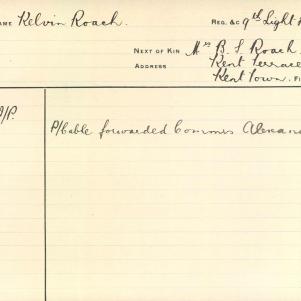 AME Kelvin Roach. REG. &C 9th Light H
NEXT OF KIN Mrs B. S. Roach
ADDRESS Kent Terrace
Kent Town. FI
/P.
P/Cable forwarded Commrs Alexan